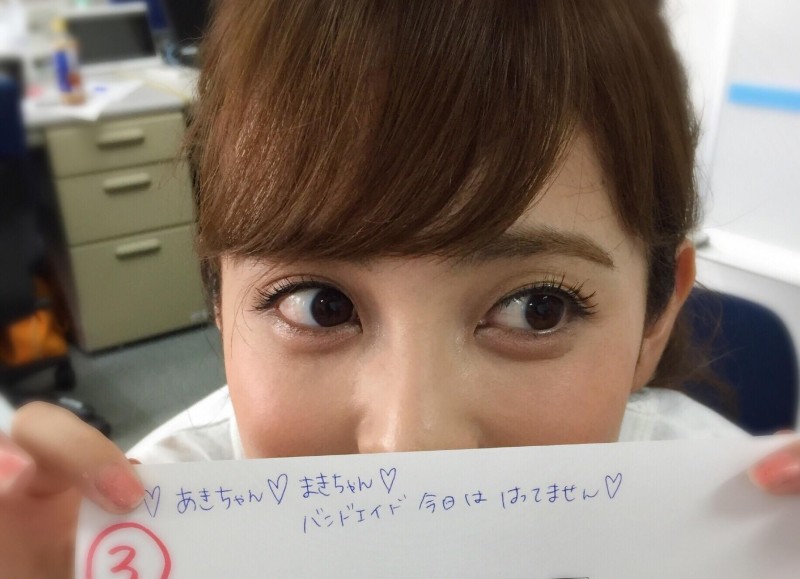 ♡ あきちゃん♡ まきちゃん♡
バンドエイド 今日は はってません♡
③